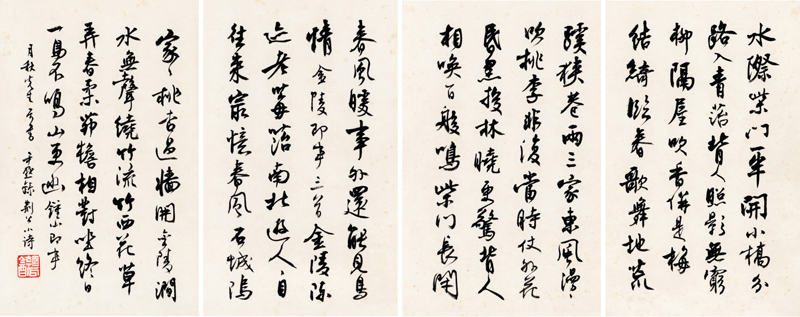 水際柴門一半開小橋分
路入青苔背人照影無窮
柳隔屋吹香併是梅
結綺臨春歌舞地荒
蹊狹巷兩三家東風漫〻
吹桃李非復當時仗外花
昏黑投林曉更驚背人
相喚百般鳴柴門長閉
春風暖事外還能見鳥
情 金陵即事三首 金陵陳
迹老莓苔南北遊人自
往來最憶春風石城隖
家〻桃杏過牆開 金陵 澗
水無聲繞竹流竹西花草
弄春柔茅簷相對坐終日
一鳥不鳴山更幽 鍾山即事
月秋先生 錄荊公小詩